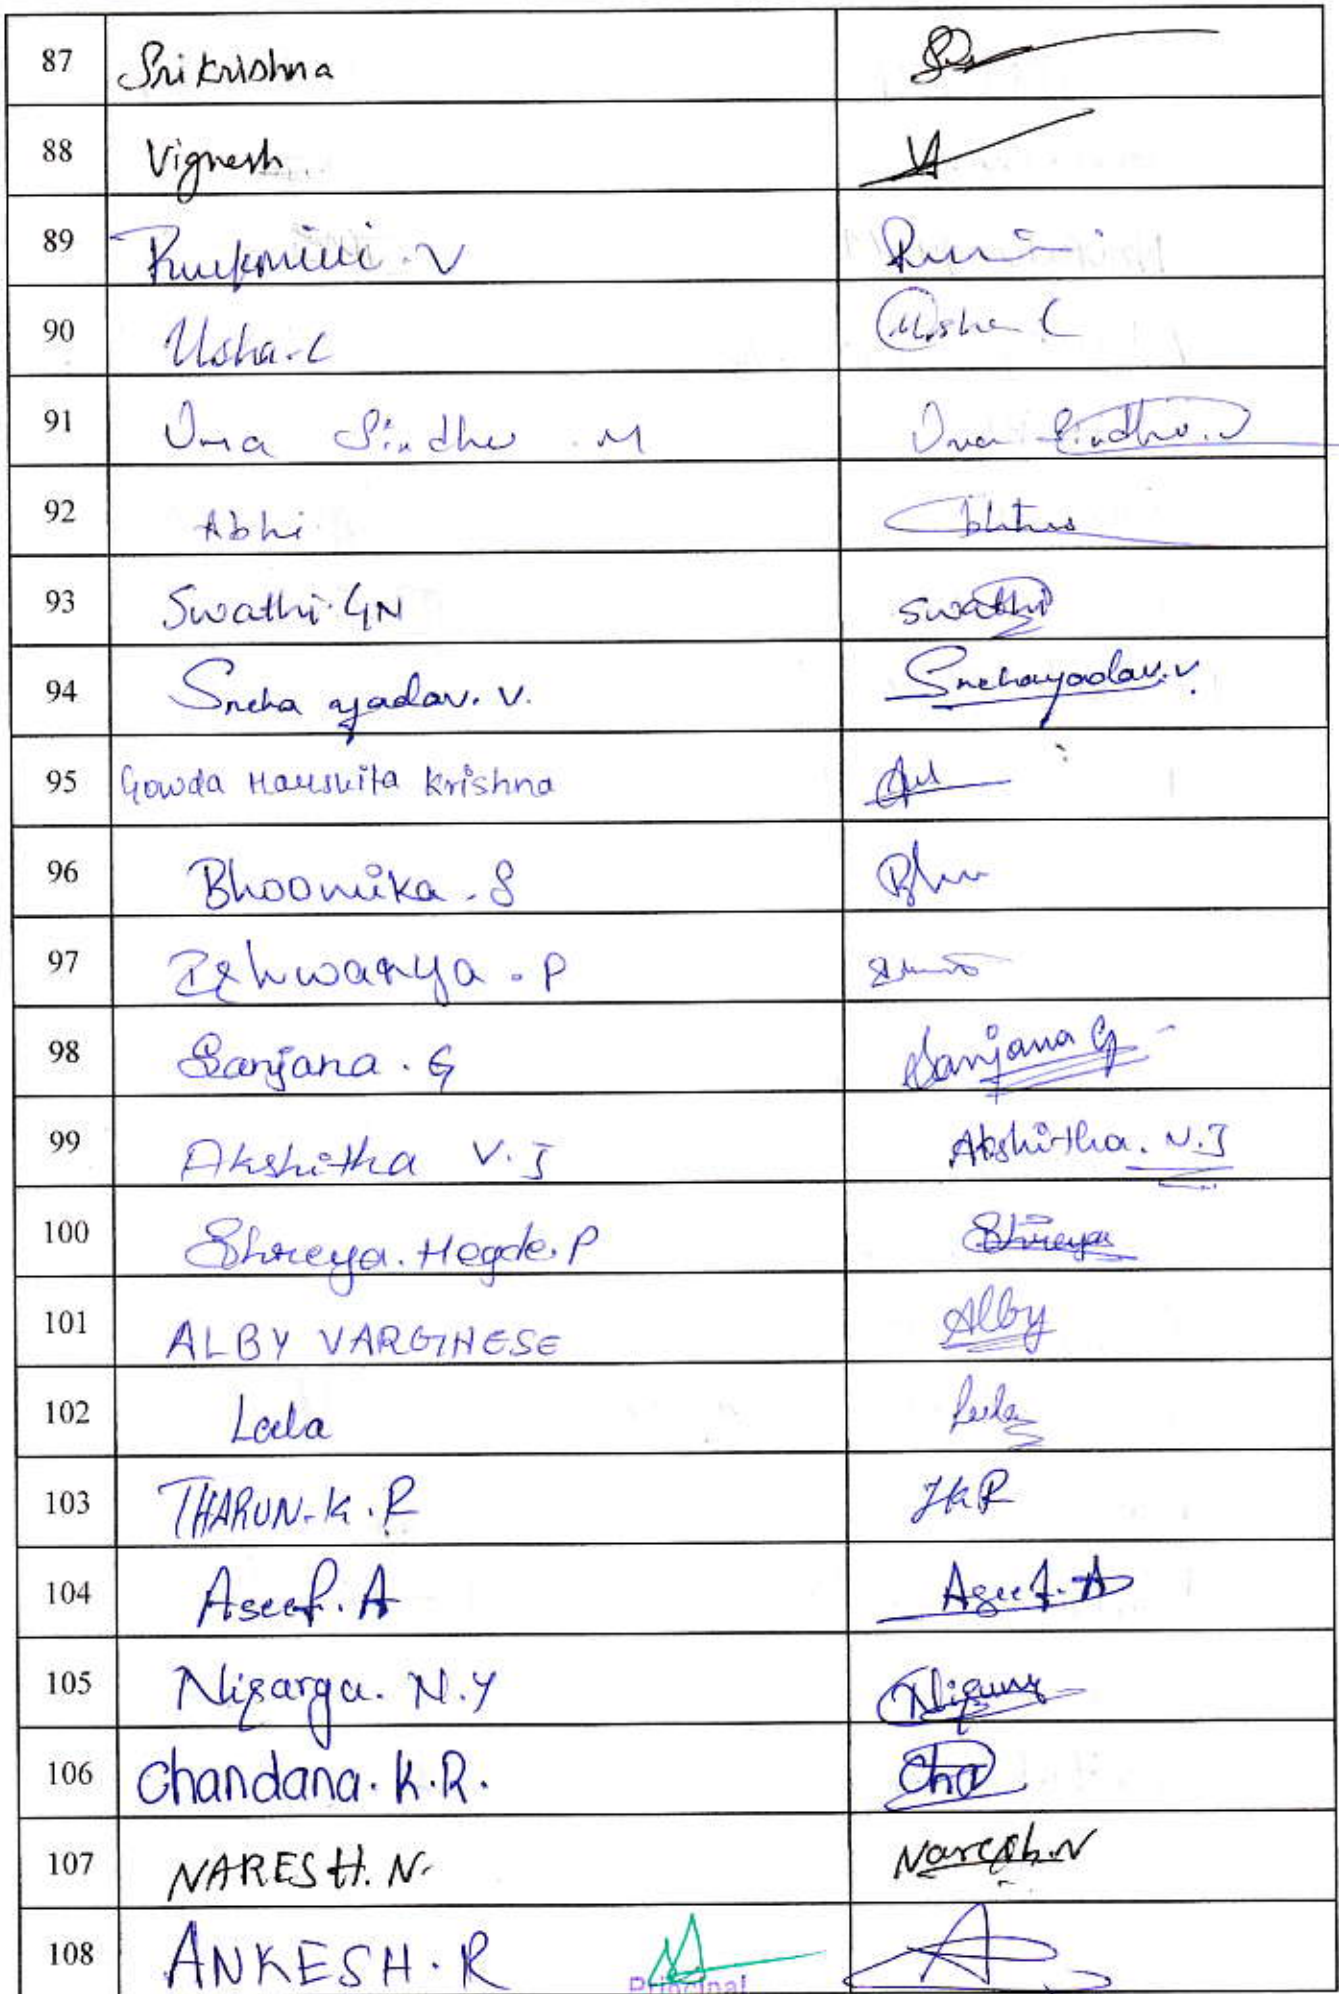 87 Srikrishna
88 Vignesh
89 Rukmini . V
90 Usha . C Usha C
91 Uma Sindhu . M Uma Sindhu
92 Abhi
93 Swathi . GN Swathi
94 Sneha yadav. V. Snehayadav. V.
95 Gowda Krishna
96 Bhoomika . S Bhu
97 Ishwarya . P
98 Sanjana . G Sanjana G
99 Akshitha V. J Akshitha. V. J
100 Shreya. Hegde. P Shreya
101 ALBY VARGHESE Alby
102 Leela Leela
103 THARUN. K. R TKR
104 Aseef. A Aseef. A
105 Nisarga. N. Y
106 Chandana. K. R. Cha
107 NARESH. N. Naresh. N
108 ANKESH. R
Principal